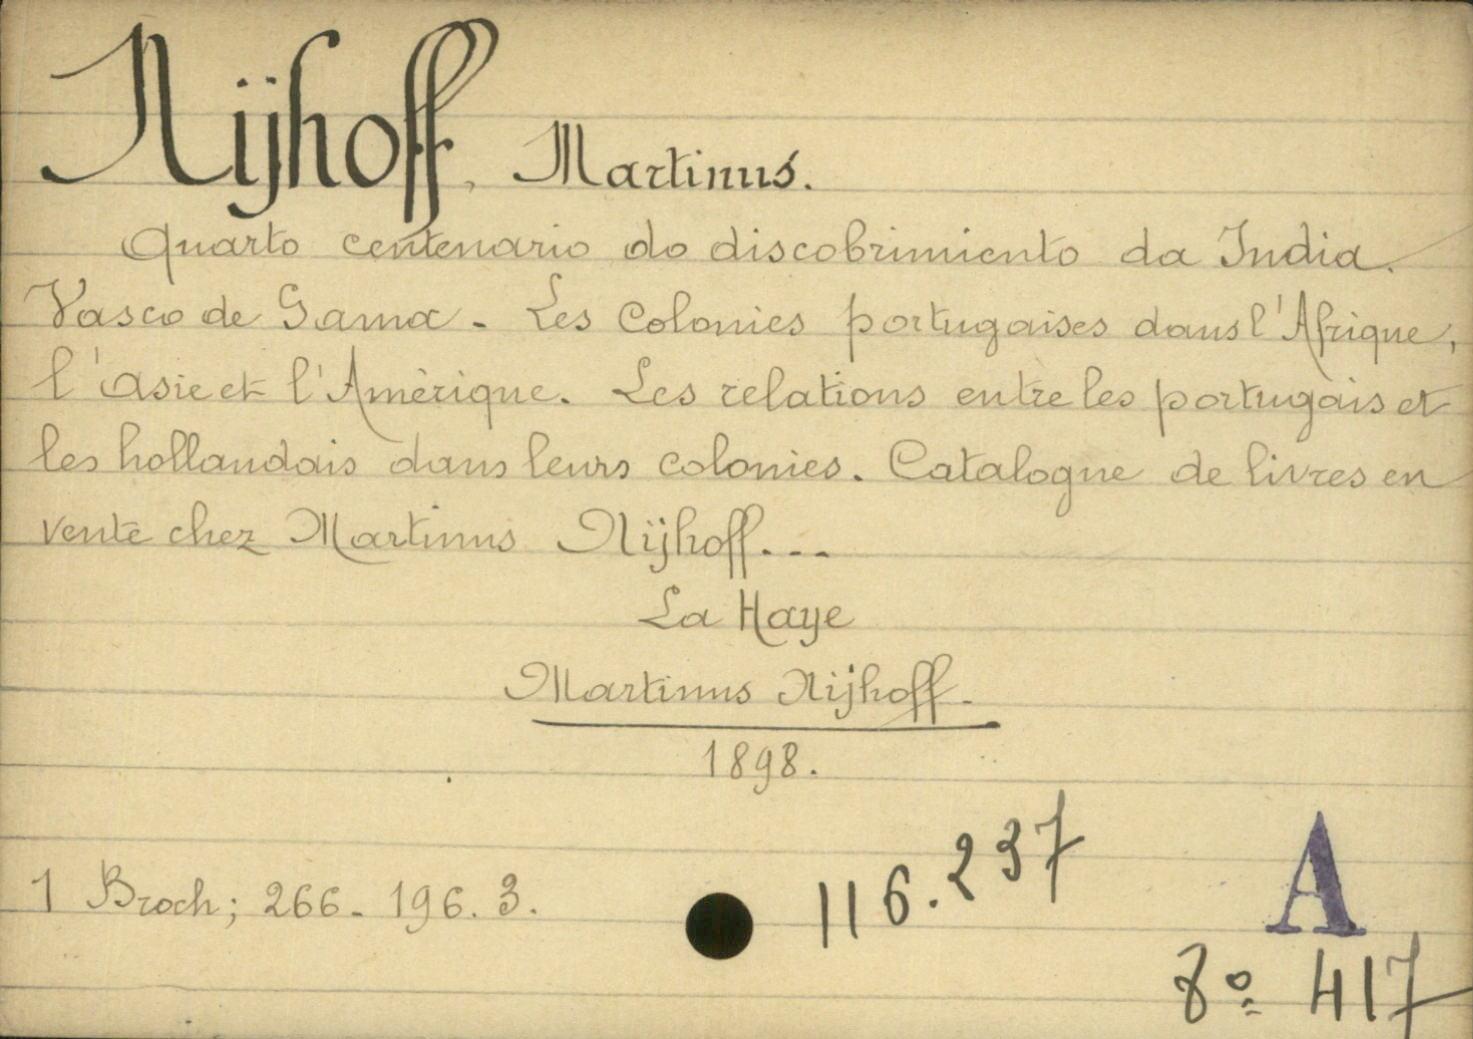 Nijhoff, Martinus.
Quarto centenario do discobrimiento da India.
Vasco de Gama - Les Colonies portugaises dans l'Afrique,
l'asie et l'Amèrique. Les relations entre les portugais et
les hollandais dans leurs colonies. Catalogue de livres en
vente chez Martinus Nijhoff...
La Haye
Martinus Nijhoff.
1898.
1 Broch; 266-196.3.
116.237
A
8º 417